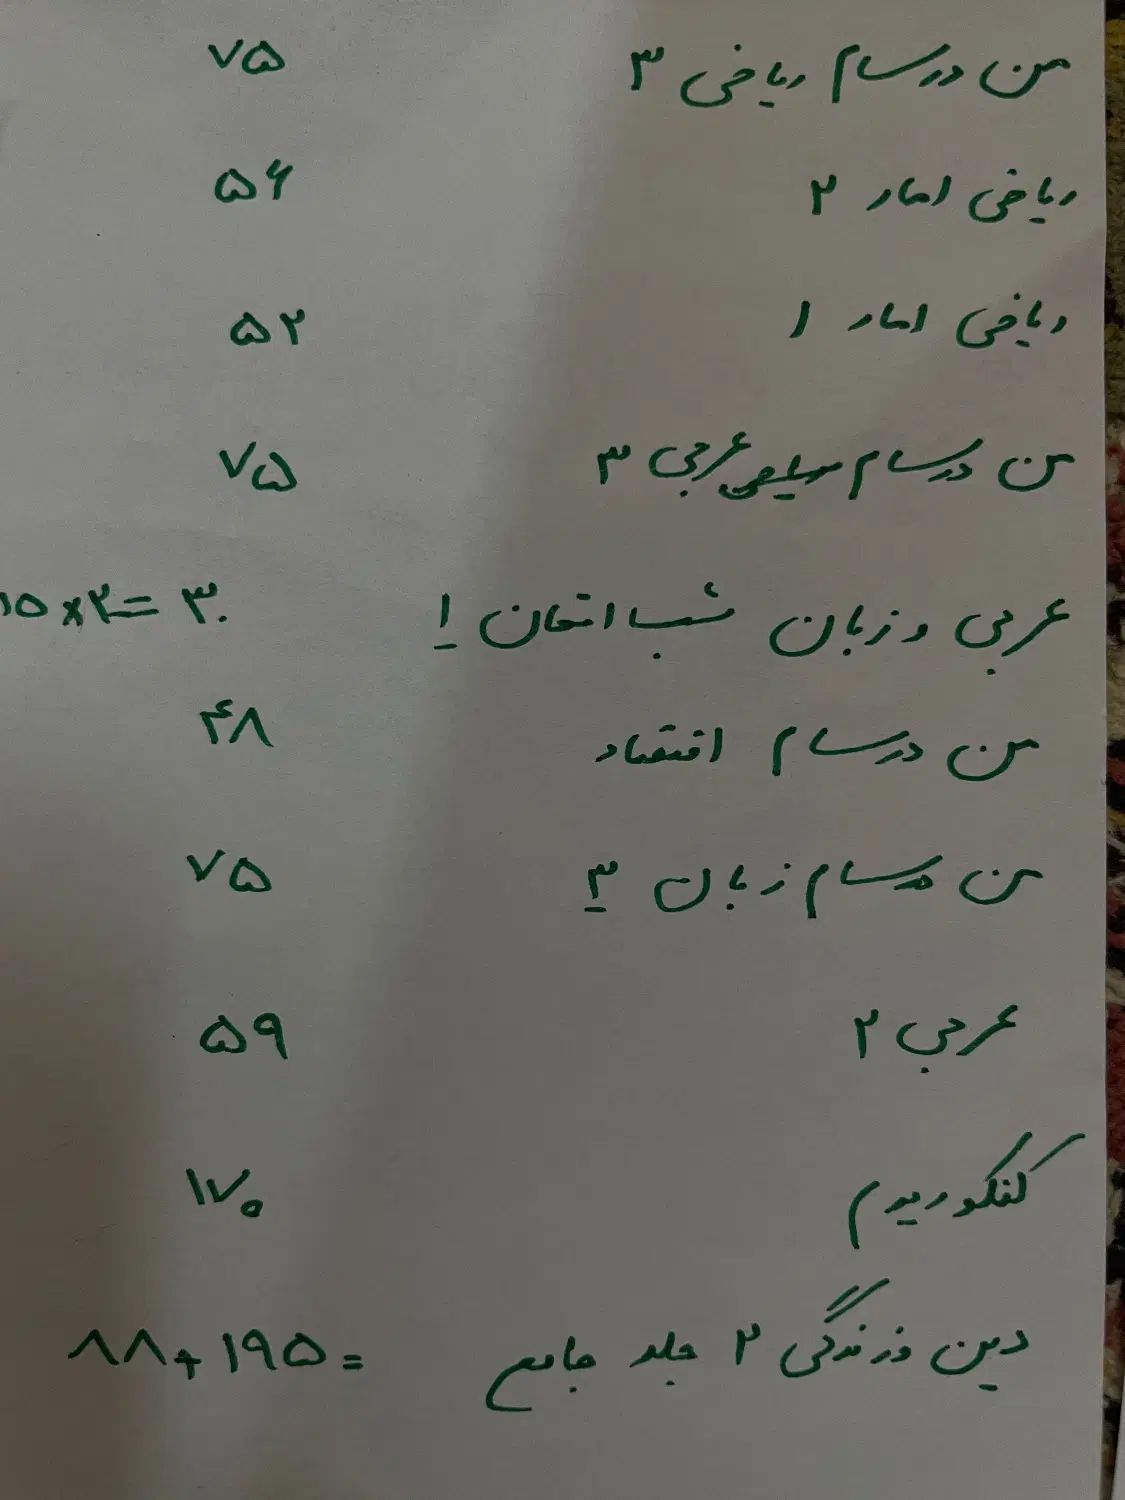 من درسام ریاضی ۳ ۷۵
ریاضی امار ۲ ۵۶
ریاضی امار ۱ ۵۲
من درسام عربی ۳ ۷۵
عربی و زبان شب امتحان ۱ ۱۵×۲=۳۰
من درسام اقتصاد ۴۸
من درسام زبان ۳ ۷۵
عربی ۲ ۵۹
کنکوریوم ۱۷۰
دین وزندگی ۲ جلد جامع = ۱۹۵+۸۸